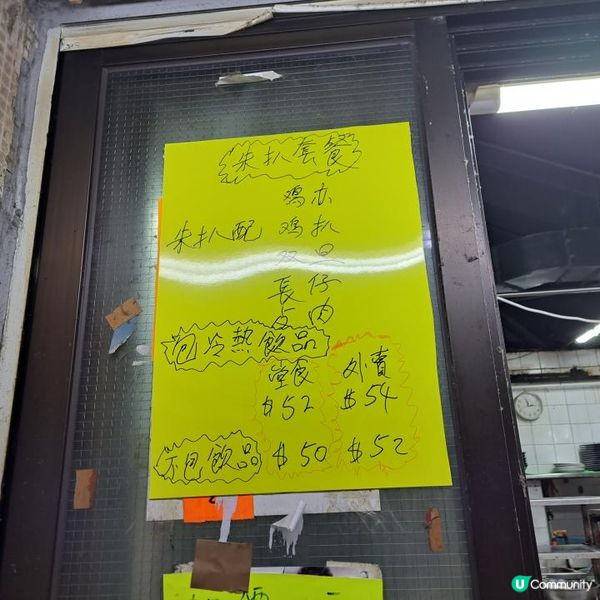 朱扒套餐
鸡亦
朱扒配 鸡扒
双旦
長仔
占肉
包冷熱飲品
堂食 外賣
$52 $54
不包飲品 $50 $52
U Community